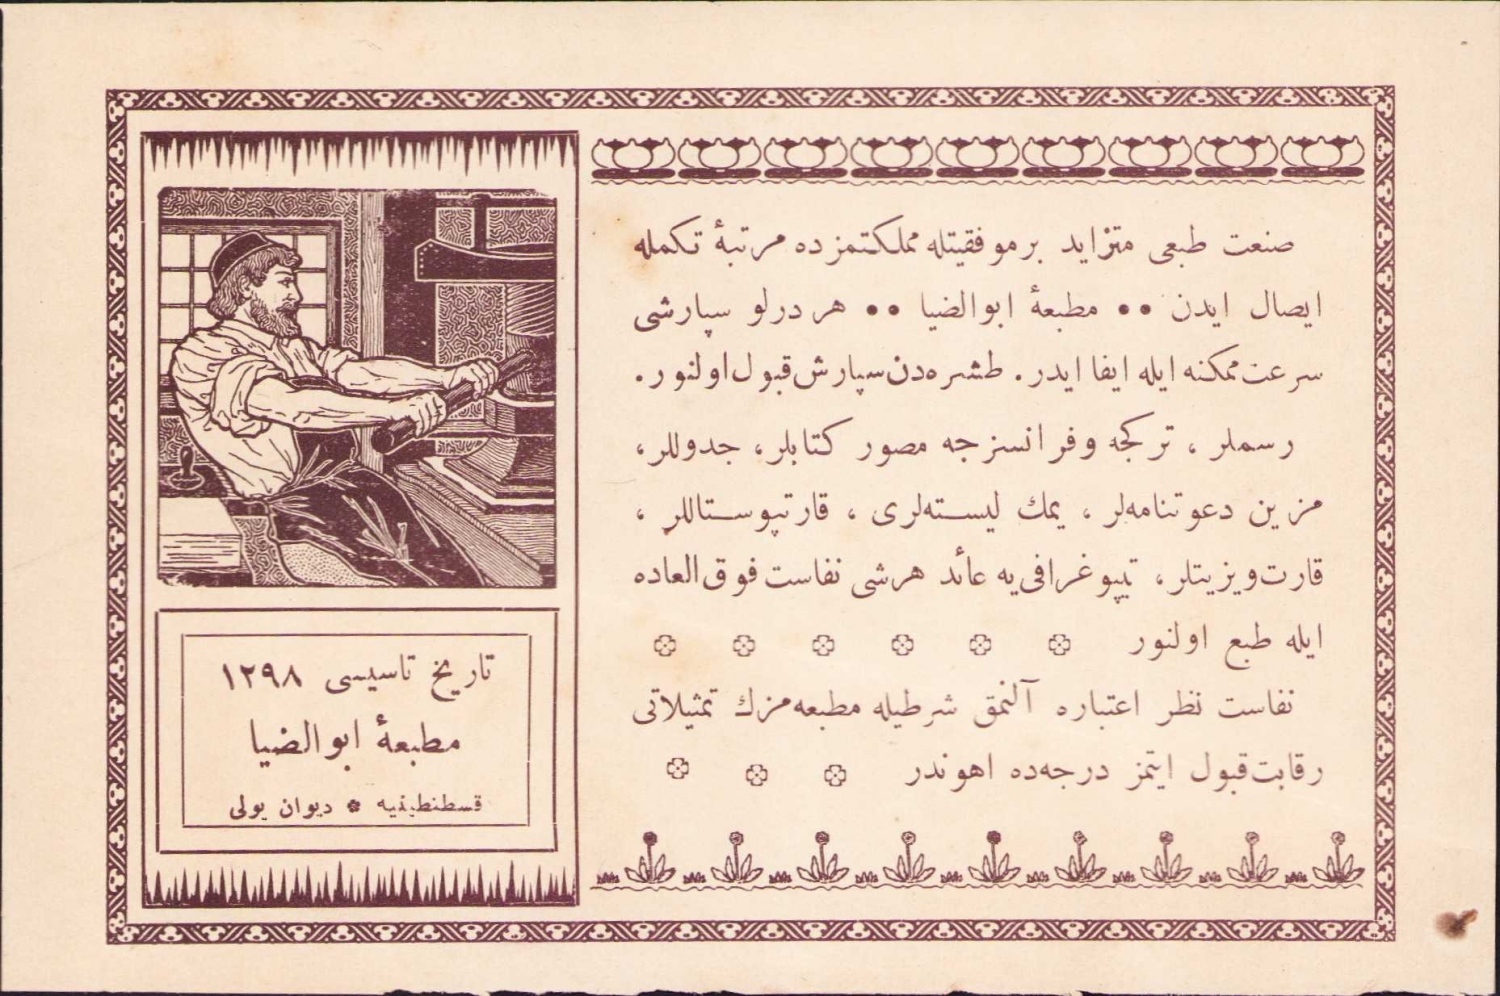 صنعت طبعی متزاید برموفقیتله مملکتمزده مرتبۀ تکمله
ایصال ایدن •• مطبعۀ ابوالضیا •• هر درلو سپارشی
سرعت ممکنه ایله ایفا ایدر. طشره‌دن سپارش قبول اولنور.
رسملر ، ترکجه وفرانسزجه مصور کتابلر، جدوللر،
مزین دعوتنامه‌لر ، یمك لیسته‌لری ، قارتپوستاللر ،
قارت‌ویزیتلر، تیپوغرافی‌یه عائد هرشی نفاست فوق‌العاده
ایله طبع اولنور
نفاست نظر اعتباره آلنمق شرطیله مطبعه‌مزك تمثیلاتی
رقابت قبول ایتمز درجه‌ده اهوندر
تاریخ تاسیسی ١٢٩٨
مطبعۀ ابوالضیا
قسطنطینیه * دیوان یولی